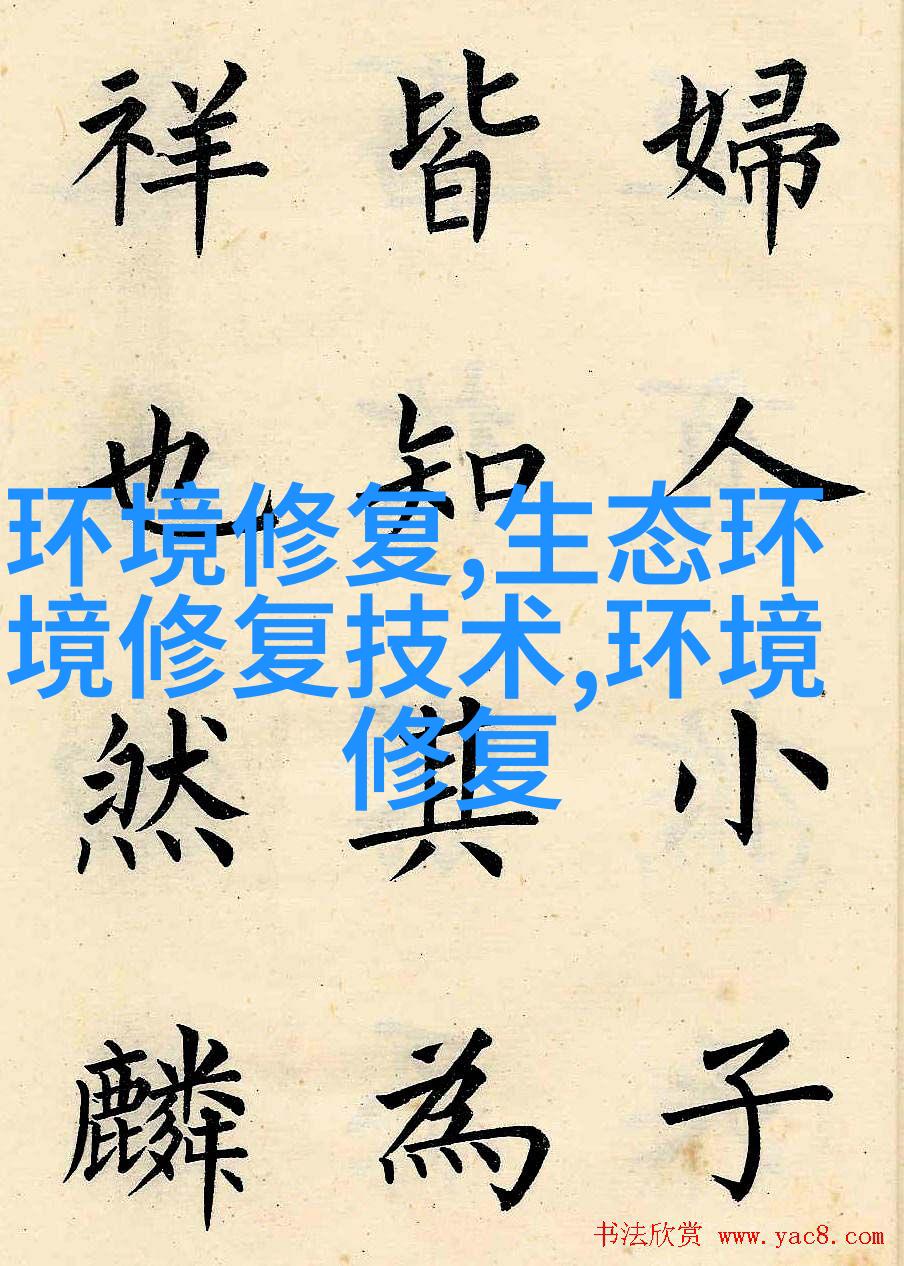 婦人小子
皆知其為
祥也然麟
环境修复,生态环
境修复技术,环境
修复
书法欣赏 www.yac8.com